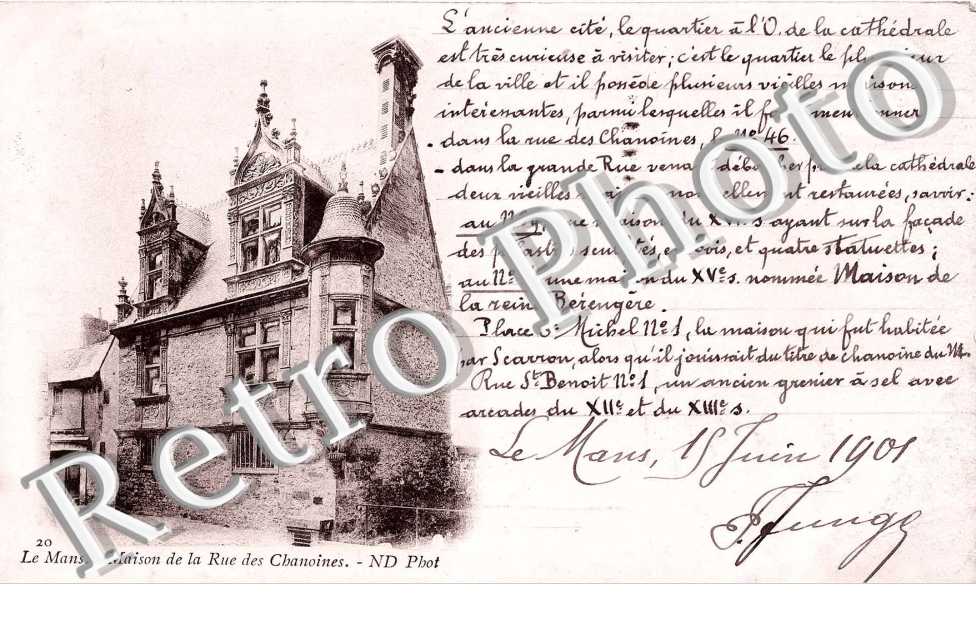 L'ancienne cité, le quartier à l'O. de la cathédrale
est très curieuse à visiter; c'est le quartier le
de la ville et il possède plusieurs vieilles
intéressantes, parmi lesquelles il
- dans la rue des Chanoines, le No 46.
- dans la grande Rue la cathédrale
deux vieilles restaurées, savoir.
au ayant sur la façade
des et quatre statuettes;
au du XVe s. nommée Maison de
la reine Bérengère.
Place St Michel No 1, la maison qui fut habitée
par Scarron, alors qu'il jouissait du titre de chanoine du
Rue St Benoit No 1, un ancien grenier à sel avec
arcades du XIIe et du XIIIe s.
Le Mans, 15 Juin 1901
20
Le Mans. Maison de la Rue des Chanoines. - ND Phot
Retro Photo